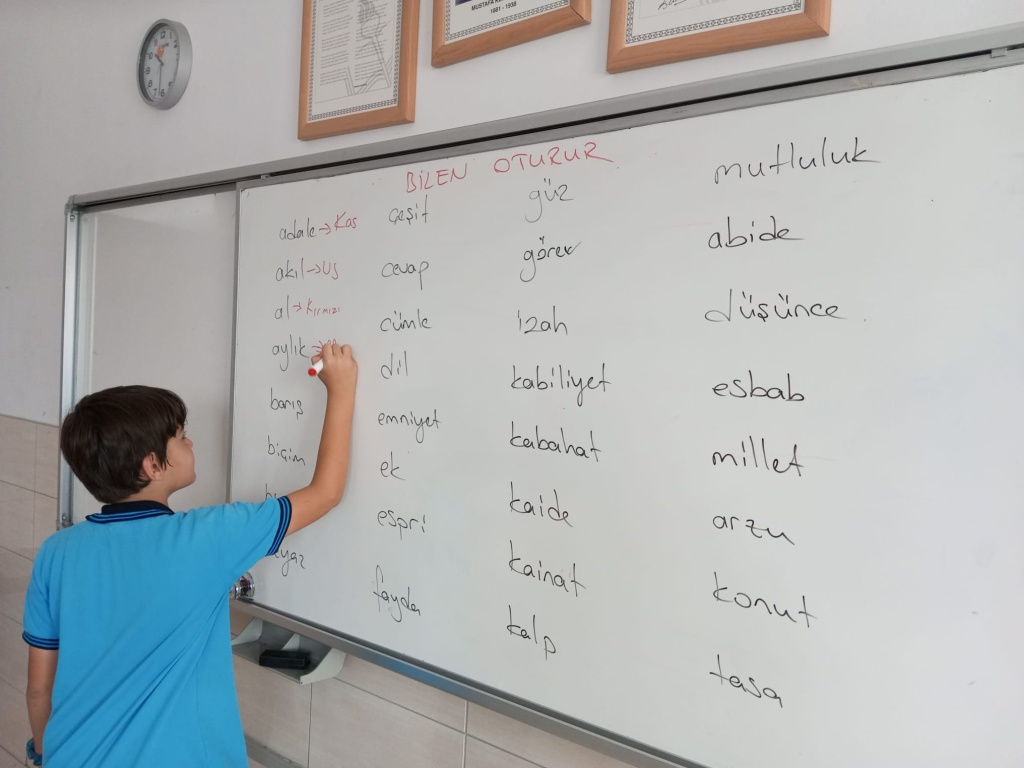 1881 - 1938
BİLEN OTURUR
adale → Kas
akıl → Us
al → Kırmızı
aylık →
barış
biçim
çeşit
cevap
cümle
dil
emniyet
ek
espri
fayda
güz
görev
izah
kabiliyet
kabahat
kaide
kainat
kalp
mutluluk
abide
düşünce
esbab
millet
arzu
konut
tasa